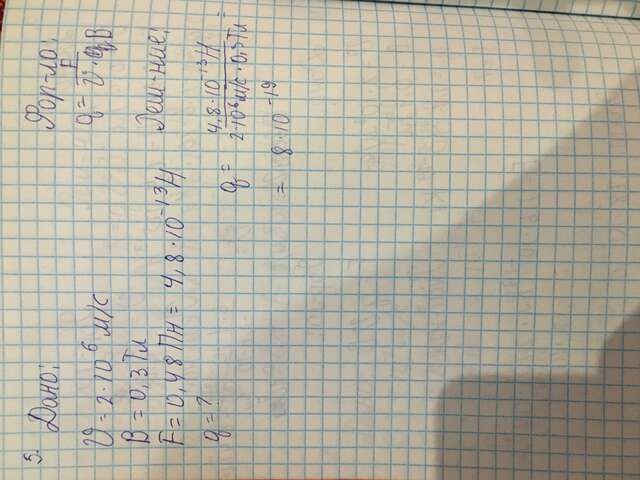 5. Дано:
V = 2·10⁶ м/с
B = 0,3 Тл
F = 0,48 Пн = 4,8·10⁻¹³ Н
q = ?
Фор-ло:
q = F / V · B
Реш-ние:
q = 4,8·10⁻¹³ Н / 2·10⁶ м/с · 0,3 Тл =
= 8·10⁻¹⁹